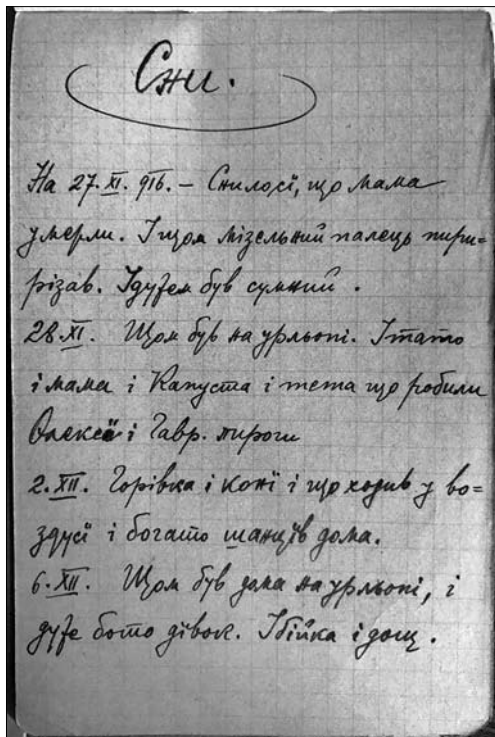 Сни.
На 27. XI. 916. – Снилосі, що мама
умерли. І щом мізельний палець пири=
різав. І дуже був сумний.
28. XI. Щом був на урльопі. І тато
і мама і Капуста і тета що робили
Олексії і Гавр. пироги
2. XII. Горівка і коні і що ходив у во=
здусі і богато шанців дома.
6. XII. Щом був дома на урльопі, і
дуже бото дівок. І бійка і дощ.